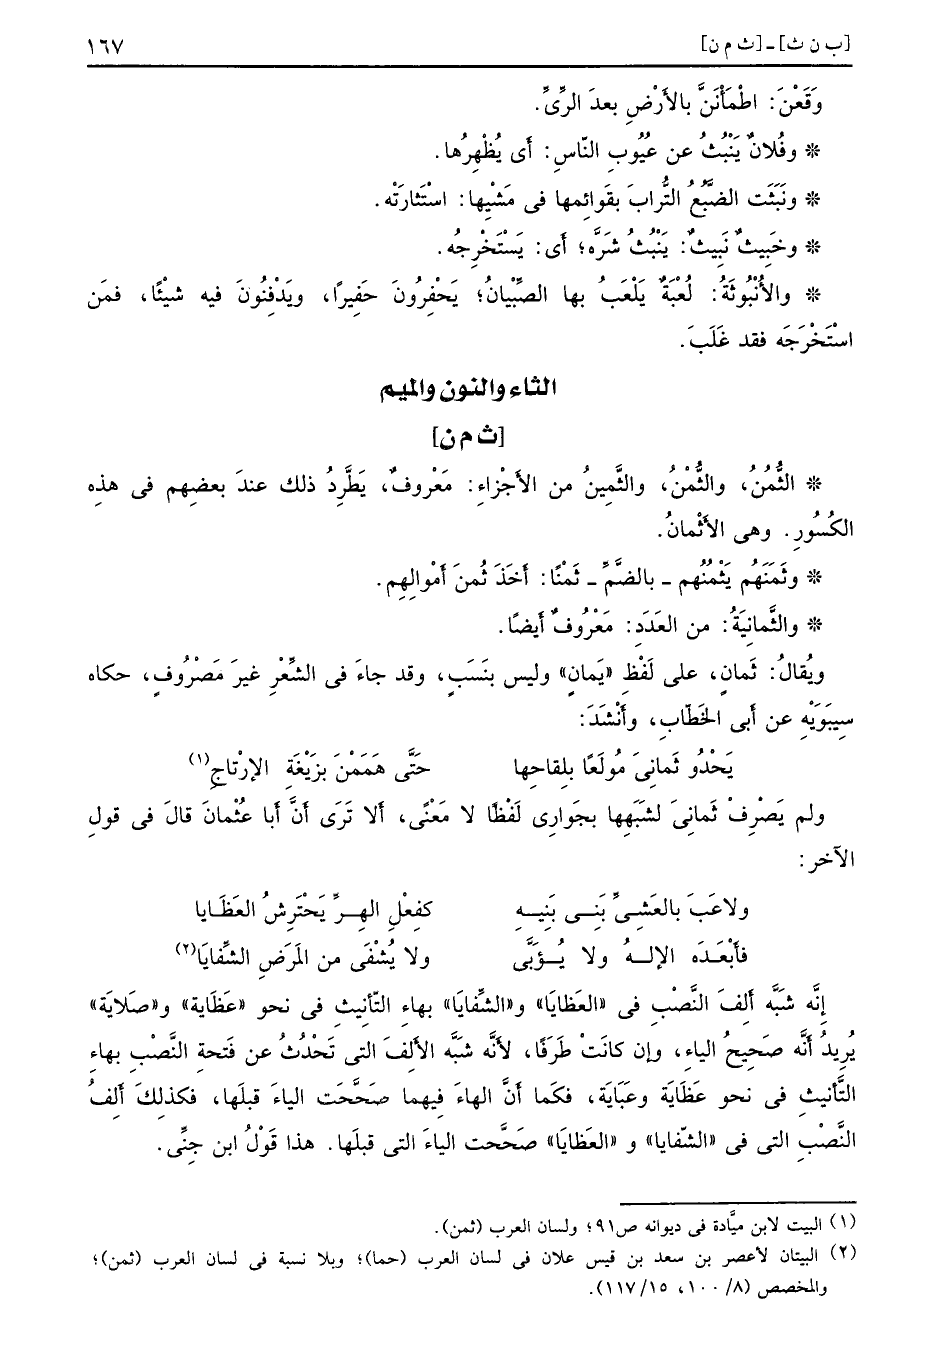 [ب ن ث] - [ث م ن] ١٦٧
وَقَعْنَ: اطْمَأْنَنَّ بالأَرْضِ بعدَ الرِّىِّ.
* وفُلانٌ يَنْبُثُ عن عيُوبِ النّاسِ: أى يُظْهِرُها.
* ونَبَثَت الضَّبُعُ التُّرابَ بقَوائمها فى مَشْيِها: استْثارَتْه.
* وخَبِيثٌ نَبِيثٌ: يَنْبُثُ شَرَّه؛ أى: يَسْتَخْرِجُه.
* والأُنْبُوثَةُ: لُعبَةٌ يَلْعَبُ بها الصِّبْيانُ؛ يَحْفِرُونَ حَفِيرًا، ويَدْفِنُونَ فيه شيئًا، فمَن
اسْتَخْرَجَه فقد غَلَبَ.
الثاء والنون والميم
[ث م ن]
* الثُّمُنُ، والثُّمْنُ، والثَّمِينُ من الأجْزاءِ: مَعْروفٌ، يَطَّرِدُ ذلك عندَ بعضِهم فى هذه
الكُسُورِ. وهى الأثْمانُ.
* وثَمَنَهُم يَثْمُنُهم - بالضَّمِّ - ثَمْنًا: أخَذَ ثُمنَ أمْوالِهِم.
* والثَّمانِيَةُ: من العَدَدِ: مَعْرُوفٌ أيضًا.
ويُقالُ: ثَمانٍ، على لَفْظِ «يَمانٍ» وليس بنَسَبٍ، وقد جاءَ فى الشِّعْرِ غيرَ مَصْروفٍ، حكاه
سِيبَوَيْهِ عن أبى الخَطّاب، وأنْشَدَ:
يَحْدُو ثَمانِىَ مُولَعًا بلِقاحِها حَتَّى هَمَمْنَ بزَيْغَةِ الإرْتاجِ(١)
ولم يَصْرِفْ ثَمانِىَ لشَبَهِها بجَوارِى لَفْظًا لا مَعْنًى، ألا تَرَى أنَّ أبا عثْمانَ قالَ فى قولِ
الآخر:
ولاعَبَ بالعَشىِّ بَنـى بَنِيـهِ كفِعْلِ الهِـرِّ يَحْتَرِشُ العَظَـايا
فأبْعَـدَه الإلـهُ ولا يُـؤَبَّى ولا يُشْفَى من المَرَضِ الشِّفايَا(٢)
إنَّه شبَّه ألفَ النَّصْبِ فى «العَظايَا» و«الشِّفايَا» بهاءِ التّأنيث فى نحو «عَظَاية» و«صَلايَة»
يُرِيدُ أنَّه صَحِيحُ الياءِ، وإن كانَتْ طَرَفًا، لأنَّه شبَّه الألفَ التى تَحْدُثُ عن فَتحةِ النَّصْبِ بهاءِ
التَّأنيثِ فى نحوِ عَظَاية وعَبَايَة، فكَما أنَّ الهاءَ فيهما صَحَّحَت الياءَ قبلَها، فكذلِكَ ألِفُ
النَّصْبِ التى فى «الشّفايا» و «العَظايَا» صَحَّحت الياءَ التى قبلَها. هذا قَوْلُ ابن جنِّى.
(١) البيت لابن ميَّادة فى ديوانه ص٩١؛ ولسان العرب (ثمن).
(٢) البيتان لأعصر بن سعد بن قيس علان فى لسان العرب (حما)؛ وبلا نسبة فى لسان العرب (ثمن)؛
والمخصص (٨/ ١٠٠، ١١٧/١٥).